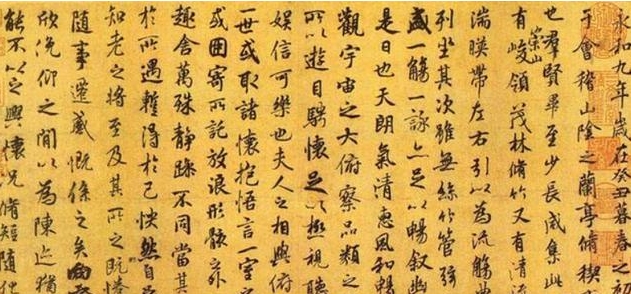 永和九年歲在癸丑暮春之初
于會稽山陰之蘭亭脩稧
也羣賢畢至少長咸集此
有崇山峻領茂林脩竹又有清流
湍暎帶左右引以為流觴曲
列坐其次雖無絲竹管弦
盛一觴一詠亦足以暢敘幽
是日也天朗氣清惠風和暢
觀宇宙之大俯察品類之
所以遊目騁懷足以極視聽
娛信可樂也夫人之相與俯
一世或取諸懷抱悟言一室之
或因寄所託放浪形骸之外
趣舍萬殊靜躁不同當其
於所遇暫得於己怏然自
知老之將至及其所之既惓
隨事遷感慨係之矣向
欣俛仰之間以為陳迹猶
能不以之興懷況脩短隨化